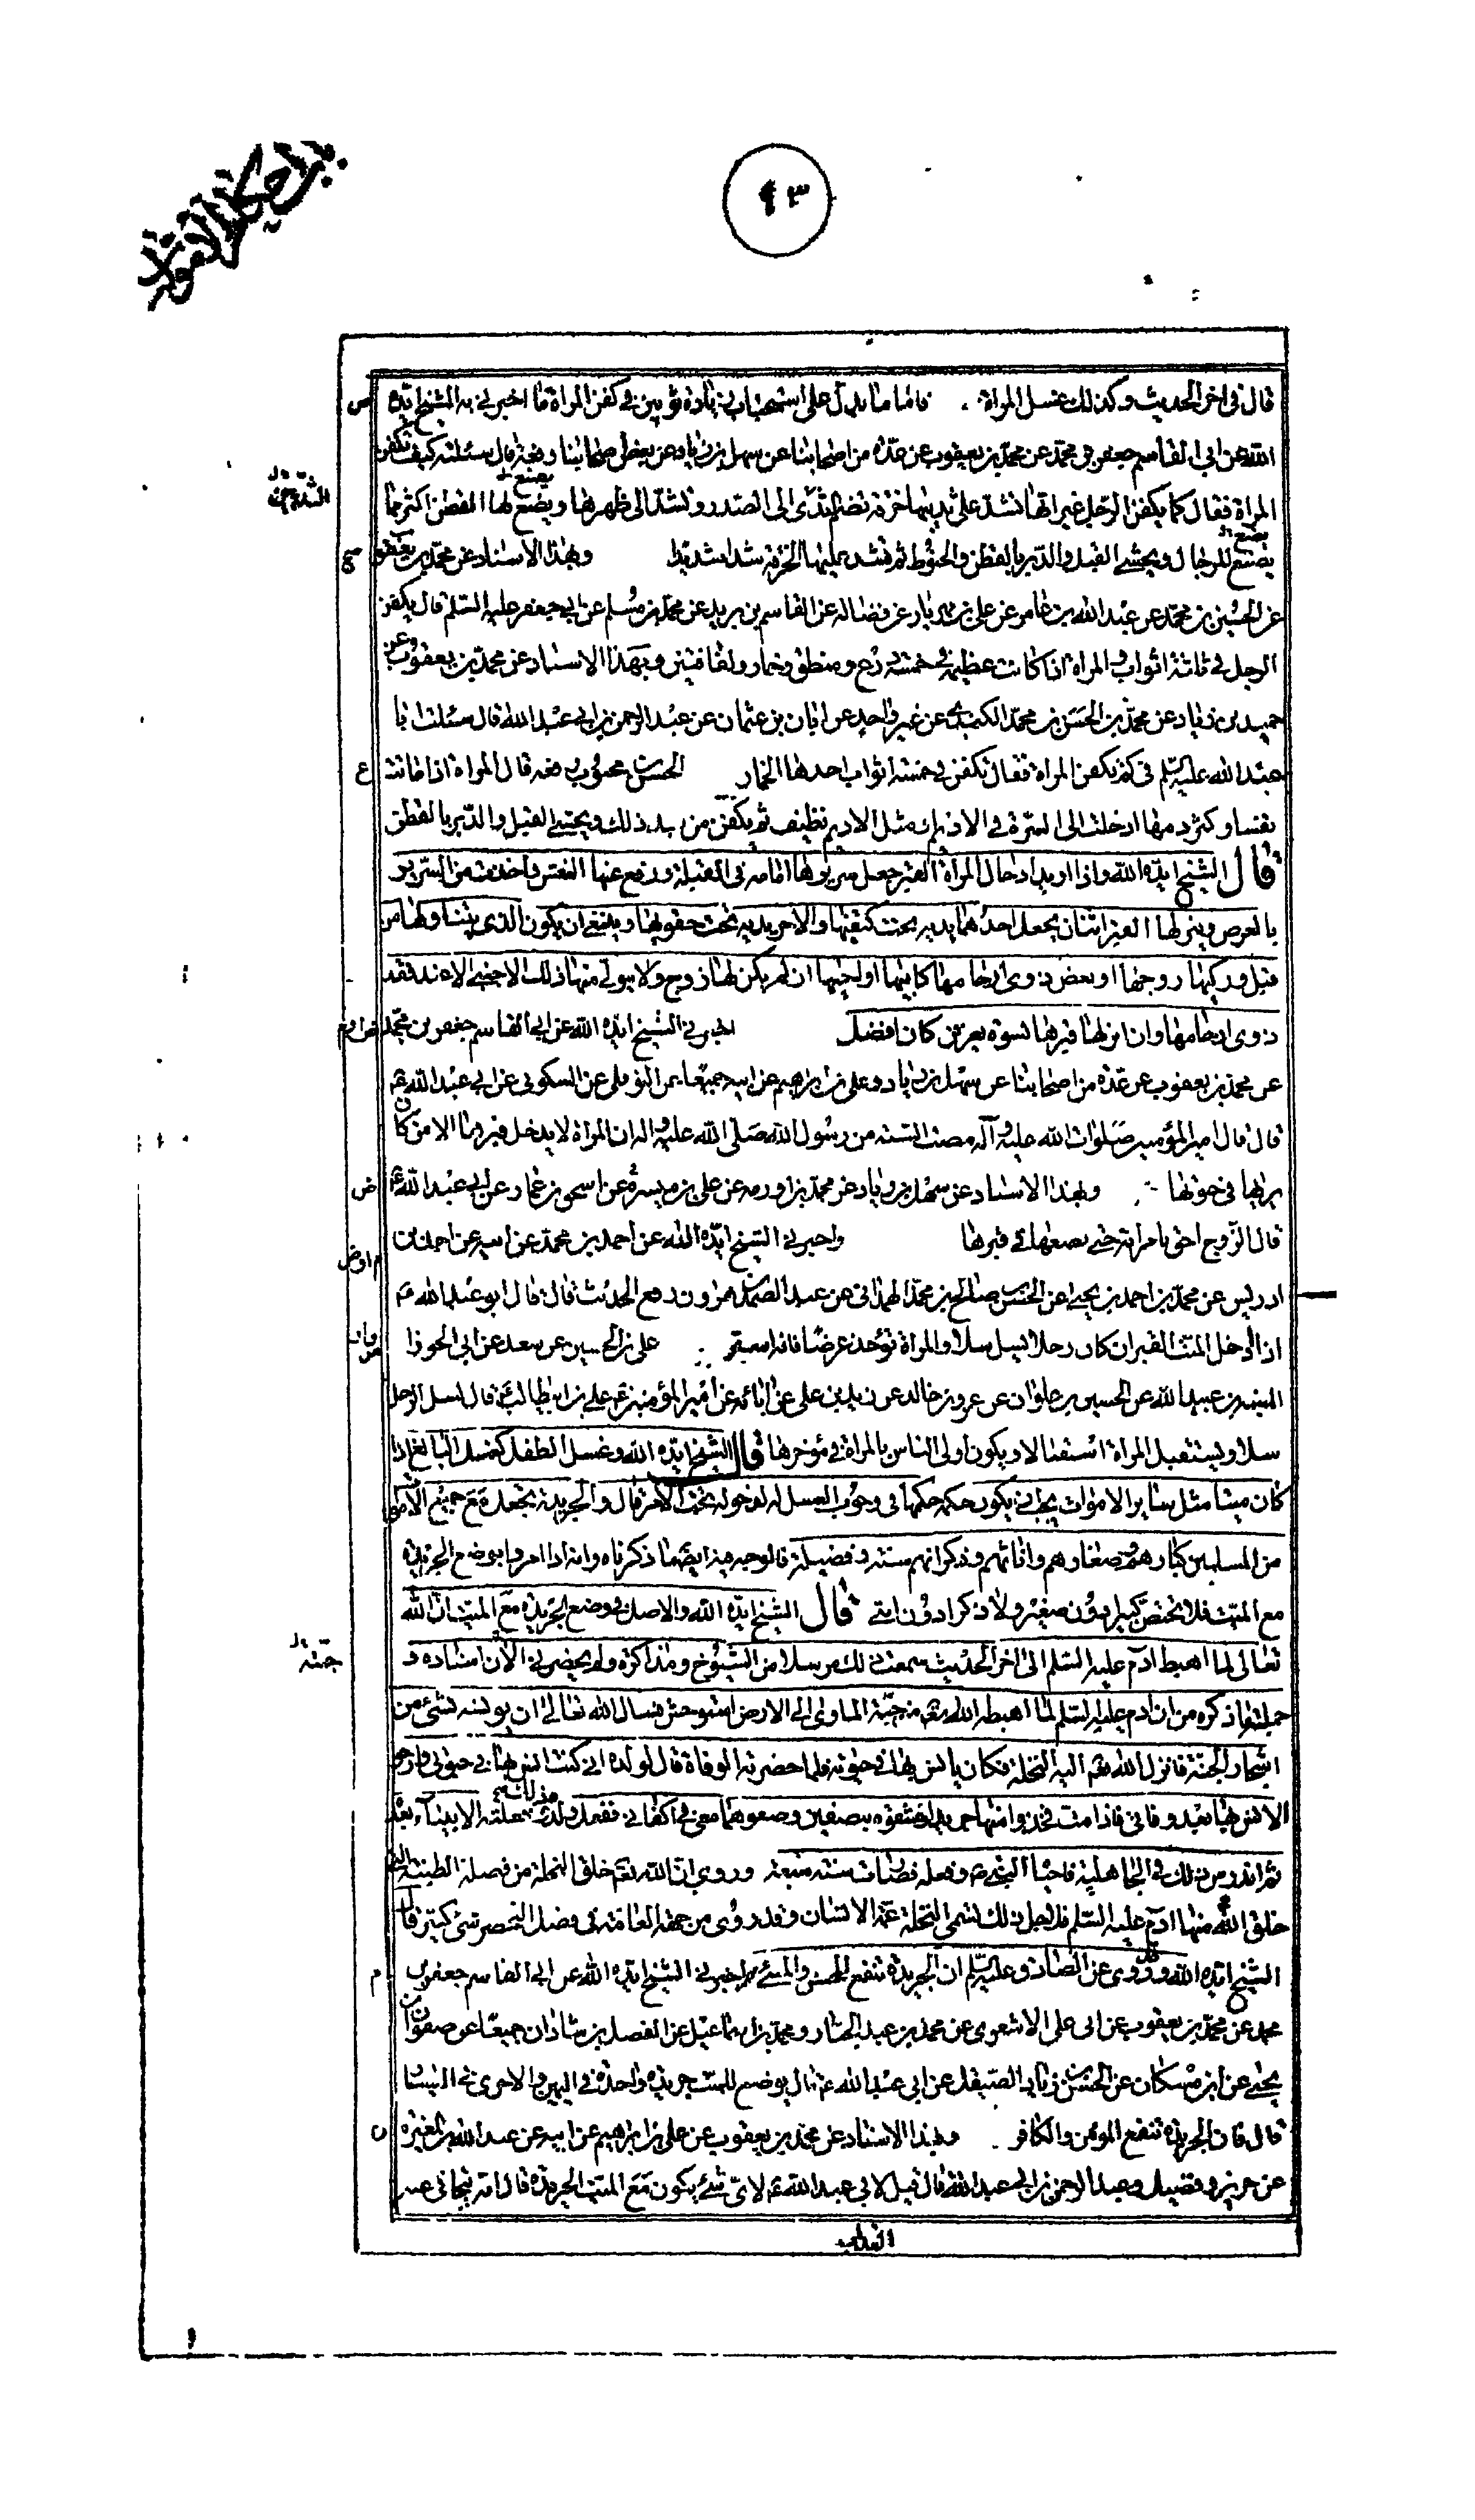 ٩٣
قال فى اخر الحديث وكذلك غسل المراة فاما ما يدل على استحباب زيادة ثوبين فى كفن المراة ما اخبرنى به الشيخ ايده
الله عن ابى القاسم جعفر بن محمد عن محمد بن يعقوب عن عدة من اصحابنا عن سهل بن زياد عن بعض اصحابنا رفعه قال سئلته كيف تكفن
المراة فقال كما يكفن الرجل غير انها تشد على ثدييها خرقة تضم الثدى الى الصدر وتشد الى ظهرها ويصنع لها القطن اكثر مما
يصنع للرجال ويحشى القبل والدبر بالقطن والحنوط ثم تشد عليها الخرقة شدا شديدا وبهذا الاسناد عن محمد بن يعقوب
عن الحسين بن محمد عن عبد الله بن عامر عن على بن مهزيار عن فضالة عن القاسم بن بريد عن محمد بن مسلم عن ابى جعفر عليه السلم قال يكفن
الرجل فى ثلثة اثواب والمراة اذا كانت عظيمة فى خمسة درع ومنطق وخمار ولفافتين وبهذا الاسناد عن محمد بن يعقوب عن
حميد بن زياد عن محمد بن الحسن بن محمد الكندى عن غير واحد عن ابان بن عثمان عن عبد الرحمن بن ابى عبد الله قال سئلت ابا
عبد الله عليه السلم فى كم تكفن المراة فقال تكفن فى خمسة اثواب احدها الخمار الحسن بن محبوب رفعه قال المراة اذا ماتت
نفساء وكثر دمها ادخلت الى السرة فى الادم او مثل الادم نظيف ثم تكفن من بعد ذلك ويحشى القبل والدبر بالقطن
قال الشيخ ايده الله واذا اريد ادخال المراة القبر جعل سريرها امامه فى القبلة ورفع عنها النعش واخذت من السرير
بالعرض وينزلها القبر اثنان يجعل احدهما يديه تحت كتفيها والاخر يديه تحت حقويها وينبغى ان يكون الذى يتناولها من
قبل وركيها زوجها او بعض ذوى ارحامها كابنها او اخيها ان لم يكن لها زوج ولا يتولى منها ذلك الاجنبى الا عند فقد
ذوى ارحامها وان انزلها قبرها نسوة يعرفن كان افضل اخبرنى الشيخ ايده الله عن ابى القاسم جعفر بن محمد
عن محمد بن يعقوب عن عدة من اصحابنا عن سهل بن زياد وعلى بن ابراهيم عن ابيه جميعا عن النوفلى عن السكونى عن ابى عبد الله ع
قال قال امير المؤمنين صلوات الله عليه وآله مضت السنة من رسول الله صلى الله عليه واله ان المراة لا يدخل قبرها الا من كان
يراها فى حيوتها وبهذا الاسناد عن سهل بن زياد عن محمد بن اورمه عن على بن ميسرة عن اسحق بن عمار عن ابى عبد الله ع
قال الزوج احق بامراته حتى يضعها فى قبرها واخبرنى الشيخ ايده الله عن احمد بن محمد عن ابيه عن احمد بن
ادريس عن محمد بن احمد بن يحيى عن الحسن بن صالح بن محمد الهمدانى عن عبد الصمد بن هرون رفع الحديث قال قال ابو عبد الله ع
اذا ادخل الميت القبر ان كان رجلا يسل سلا والمراة تؤخذ عرضا فانه استر على بن الحسين عن سعد عن ابى الجوزا
المنبه بن عبيد الله عن الحسين بن علوان عن عمرو بن خالد عن زيد بن على عن ابائه عن امير المؤمنين على بن ابى طالب ع قال يسل الرجل
سلا ويستقبل المراة استقبالا ويكون اولى الناس بالمراة فى مؤخرها قال الشيخ ايده الله وغسل الطفل كغسل البالغ اذا
كان ميتا مثل ساير الاموات يجب ان يكون حكمه حكمها فى وجوب الغسل له لدخوله تحت الامر قال والجريدة تجعل مع جميع الاموات
من المسلمين كبارهم وصغارهم واناثهم وذكرانهم سنة وفضيلة فالوجه فيه ايضا ما ذكرناه وانه اذا امروا بوضع الجريدة
مع الميت فلا تخص كبيرا دون صغير ولا ذكرا دون انثى قال الشيخ ايده الله والاصل فى وضع الجريدة مع الميت ان الله
تعالى لما اهبط ادم عليه السلم الى اخر الحديث سمعت ذلك مرسلا من الشيوخ ومذاكرة ولم يحضرنى الان اسناده و
جملة ما ذكره من ان ادم عليه السلم لما اهبطه الله تعالى من جنة الماوى الى الارض استوحش فسال الله تعالى ان يونسه بشئ من
اشجار الجنة فانزل الله تعالى اليه النخلة فكان يانس بها فى حيوته فلما حضرته الوفاة قال لولده انى كنت انس بها فى حيوتى وارجو
الانس بها بعد وفاتى فاذا مت فخذوا منها جريدا فشقوه بنصفين وضعوهما معى فى اكفانى ففعل ولده ذلك وفعلته الانبياء بعده
ثم اندرس ذلك فى الجاهلية فاحياه النبى ص وفعله فصارت سنة متبعة وروى ان الله تعالى خلق النخلة من فضلة الطينة التى
خلق الله منها ادم عليه السلم فلاجل ذلك تسمى النخلة عمة الانسان وقد روى من جهة العامة فى فضل التخضير شئ كثير قال
الشيخ ايده الله وقد روى عن الصادق عليه السلم ان الجريدة تنفع المحسن والمسئ اخبرنى الشيخ ايده الله عن ابى القاسم جعفر بن
محمد عن محمد بن يعقوب عن ابى على الاشعرى عن محمد بن عبد الجبار ومحمد بن اسماعيل عن الفضل بن شاذان جميعا عن صفوان بن
يحيى عن ابن مسكان عن الحسن بن زياد الصيقل عن ابى عبد الله ع قال يوضع للميت جريدة واحدة فى اليمين والاخرى فى اليسار
قال قال الجريدة تنفع المؤمن والكافر وبهذا الاسناد عن محمد بن يعقوب عن على بن ابراهيم عن ابيه عن عبد الله بن المغيرة
عن حريز وفضيل وعبد الرحمن بن ابى عبد الله قال قيل لابى عبد الله ع لاى شئ يكون مع الميت الجريدة قال انه يتجافى عنه
العذاب